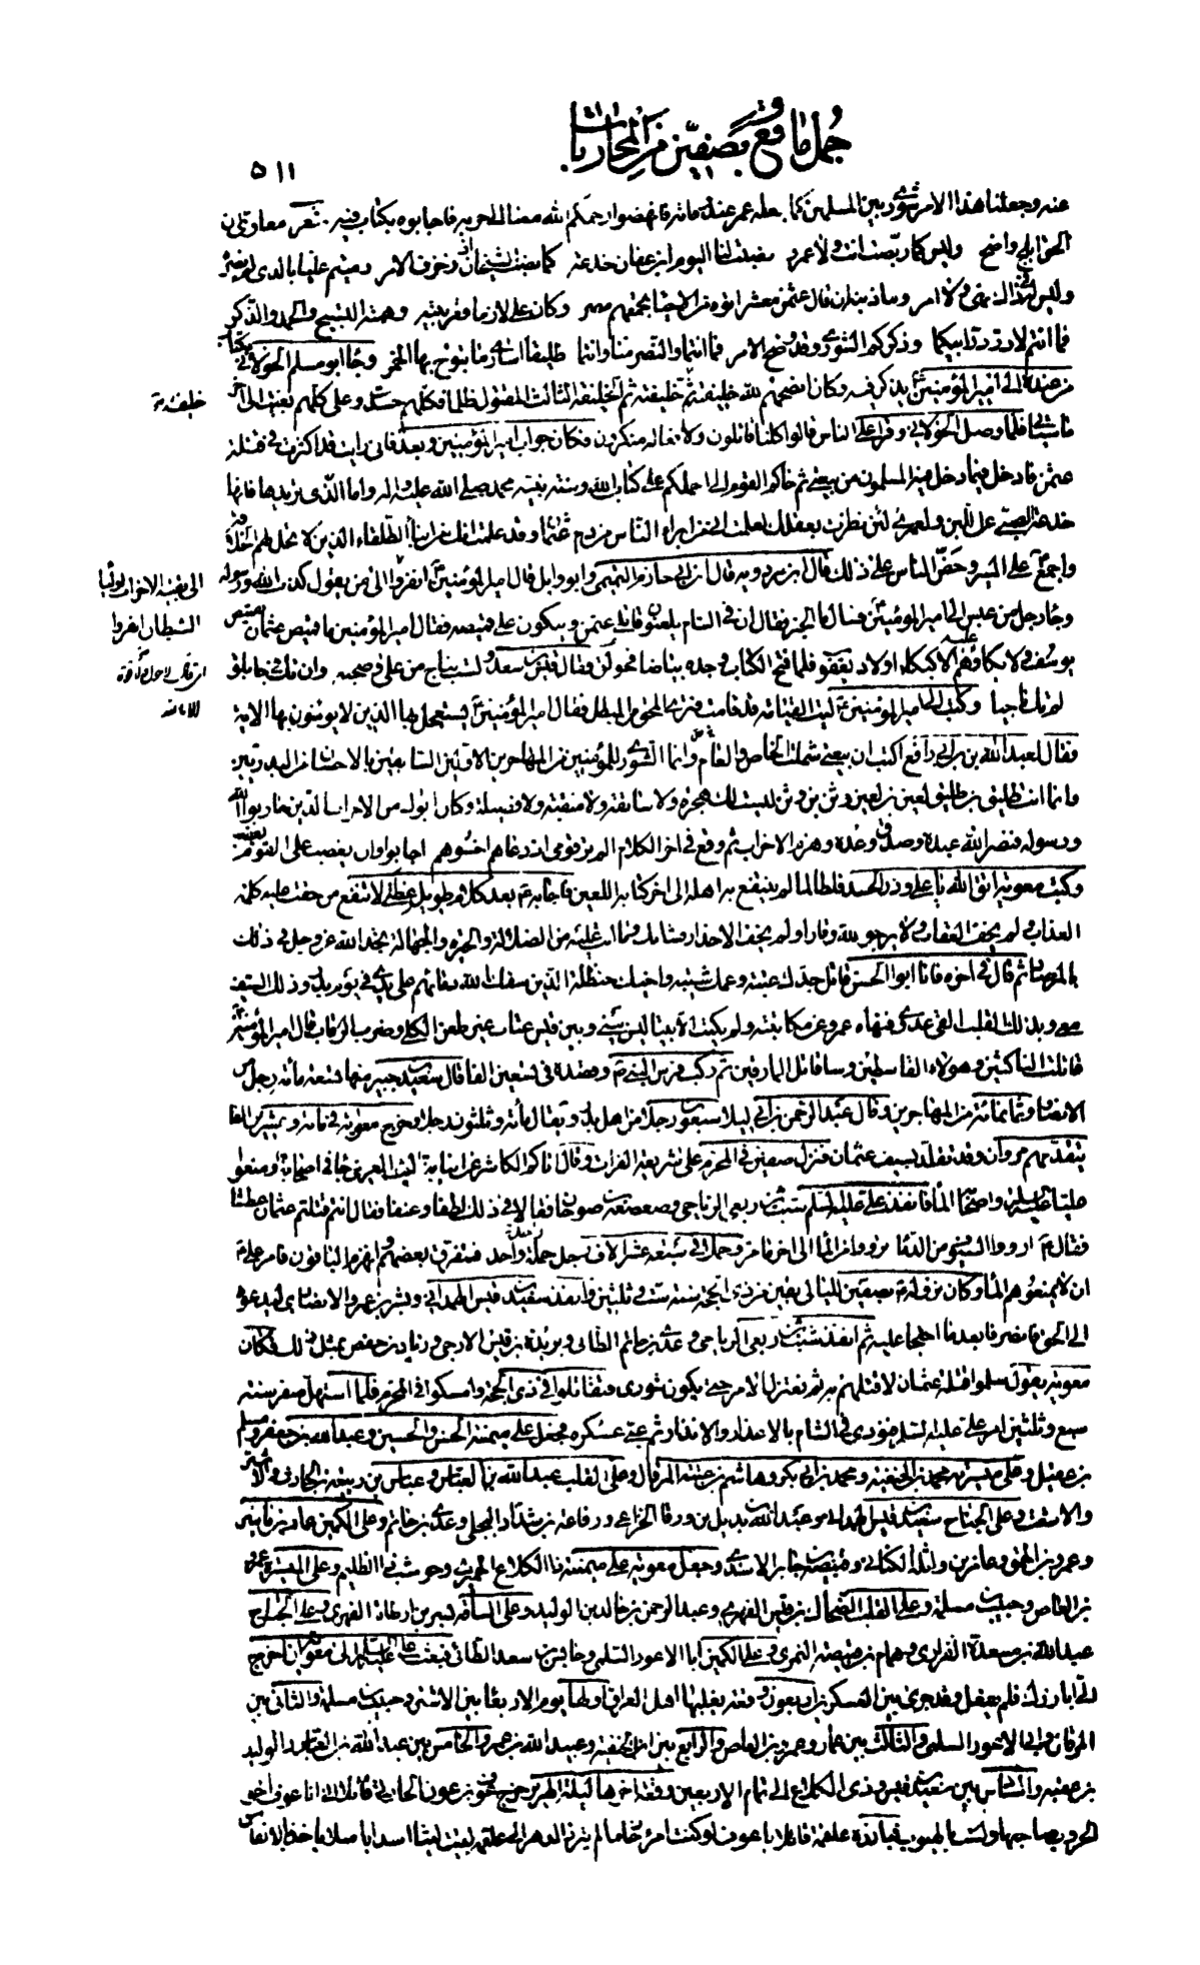 جمل ما وقع بصفين من المحاربات
٥١١
عنه وجعلنا هذا الامر شورى بين المسلمين كما جعله عمر عند وفاته فانهضوا رحمكم الله معنا الى حربه فاجابوه بكتاب فيه شعر معاوي ان
الحق ابلج واضح وليس كما ربصت انت ولا عمرو نصبت لنا اليوم ابن عفان خدعة كما نصب الشيخان اذ زخرف الامر رميتم عليا بالذي لم يضره
وليس له في ذاك نهى ولا امر وما ذنبه ان نال عثمن معشر اتوه من الاحياء يجمعهم مصر وكان على لازما قعر بيته وهمته التسبيح والحمد والذكر
فما انتما لا در در ابيكما وذكركم الشورى وقد وضح الامر فما انتما والنصر منا وانتما طليقا اسارى ما تبوح بها الخمر وجاء ابو مسلم الخولاني بكتاب
من عنده الى امير المؤمنين يذكر فيه وكان انصحهم لله خليفته ثم خليفة خليفته ثم الخليفة الثالث المقتول ظلما فكلهم حسدت وعلى كلهم بغيت الى اخره
خليفته
فلما وصل الخولاني وقرا على الناس قالوا كلنا قاتلون ولافعاله منكرون فكان جواب امير المؤمنين وبعد فانى رايت قد اكثرت في قتلة
عثمن فادخل فيما دخل فيه المسلمون من بيعتي ثم حاكم القوم الى احملكم على كتاب الله وسنة نبيه محمد صلى الله عليه واله واما الذى تريدها فانها
خدعة الصبي عن اللبن ولعمرى لئن نظرت بعقلك لعلمت انى من ابرء الناس من دم عثمن وقد علمت انك من ابناء الطلقاء الذين لا تحل لهم الخلافة
واجمع على المسير وحض الناس على ذلك قال ابن مردويه قال ابن ابي حازم التميمي وابو وايل قال امير المؤمنين انفروا الى من يقول كذب الله ورسوله
الى بقية الاحزاب اولياء
الشيطان انفروا
وجاء رجل من عبس الى امير المؤمنين فساله ما الخبر فقال ان في الشام يلعنون قاتلى عثمن ويبكون على قميصه فقال امير المؤمنين ما قميص عثمان بقميص
يوسف ولا بكاؤهم عليه الا كبكاء اولاد يعقوب فلما فتح الكتاب وجده بياضا فحولق فقال قيس بن سعد ولست بناج من على وصحبه وان تك في جابلق
لم تك ناجيا وكتب الى امير المؤمنين ليت القيامة قد قامت فترى المحق والمبطل فقال امير المؤمنين يستعجل بها الذين لا يؤمنون بها الاية
فقال لعبد الله بن ابي رافع اكتب ان بيعتي شملت الخاص والعام وانما الشورى للمؤمنين من المهاجرين الاولين السابقين بالاحسان من البدريين
وانما انت طليق بن طليق لعين بن لعين وثن بن وثن ليست لك هجرة ولا سابقة ولا منقبة ولا فضيلة وكان ابوك من الاحزاب الذين حاربوا الله
ورسوله فنصر الله عبده وصدق وعده وهزم الاحزاب ثم وقع في اخر الكلام الم تر قومي اذ دعاهم اخوهم اجابوا وان يغضب على القوم يغضب
وكتب معوية اتق الله يا على وذر الحسد فلطالما لم ينتفع به اهله الى اخر كتابه اللعين فاجابه بعد كلام طويل عظتى لا تنفع من حقت عليه كلمة
العذاب ولم يخف العقاب ولا يرجو لله وقارا ولم يخف الاحذارا فشانك وما انت عليه من الضلالة والحيرة والجهالة تجد الله عز وجل في ذلك
بالمرصاد ثم قال في اخره فانا ابو الحسن قاتل جدك عتبة وعمك شيبة واخيك حنظلة الذين سفك الله دماءهم على يدى في يوم بدر وذلك السيف
معي وبذلك القلب القى عدوى فنهاه عمرو عن مكاتبته ولم يكتب الا بيتا ليس بيني وبين قيس عتاب غير طعن الكلى وضرب الرقاب قال امير المؤمنين
قاتلت الناكثين وهؤلاء القاسطين وساقاتل المارقين ثم ركب فرس النبي وقصده في تسعين الفا قال سعيد بن جبير منها تسعمائة رجل من
الانصار وثمانمائة من المهاجرين وقال عبد الرحمن بن ابي ليلى سبعون رجلا من اهل بدر ويقال مائة وثلثون رجلا وخرج معوية في مائة وعشرين الفا
يتقدمهم مروان وقد تقلد بسيف عثمان فنزل صفين في المحرم على شريعة الفرات وقال اتاكم الكاشر عن انيابه ليث العرين جاء في اصحابه ومنعوا
عليا واصحابه الماء فانفذ على عليه السلم شبث بن ربعي الرياحي وصعصعة بن صوحان فقالا في ذلك لطفا وعنفا فقال انتم قتلتم عثمان عطشا
فقال ارووا السيوف من الدماء ترووا من الماء الى اخر كلامه وحمل في سبعة عشر الاف رجل حملة رجل واحد فتفرق بعضهم وانهزم الباقون فامر على
ان لا يمنعوهم الماء وكان نزوله بصفين لليالى بقين من ذى الحجة سنة ست وثلثين وانفذ سعيد بن قيس الهمداني وبشر بن عمرو الانصاري ليدعوه
الى الحق فانصرفا بعد ما احتجا عليه ثم انفذ شبث بن ربعى الرياحي وعدى بن حاتم الطائي ويزيد بن قيس الارحبي وزياد بن حفص بمثل ذلك فكان
معوية يقول سلموا قتلة عثمان لاقتلهم به ثم نعتزل الامر حتى يكون شورى فتقاتلوا في ذى الحجة وامسكوا في المحرم فلما استهل صفر سنة
سبع وثلثين امر على عليه السلم فنودى في الشام بالاعذار والانذار ثم عبى عسكره فجعل على ميمنته الحسن والحسين وعبد الله بن جعفر ومسلم
بن عقيل وعلى ميسرته محمد بن الحنفية ومحمد بن ابي بكر وهاشم بن عتبة المرقال وعلى القلب عبد الله بن العباس وعباس بن ربيعة بن الحارث والاشتر
والاشعث وعلى الجناح سعيد بن قيس الهمداني وعبد الله بن بديل بن ورقا الخزاعي ورفاعة بن شداد البجلي وعدى بن حاتم وعلى الكمين عمار بن ياسر
وعمرو بن الحمق وعامر بن واثلة الكناني وقبيصة بن جابر الاسدى وجعل معوية على ميمنته ذا الكلاع الحميرى وحوشب ذا الظليم وعلى الميسرة عمرو
بن العاص وحبيب بن مسلمة وعلى القلب الضحاك بن قيس الفهرى وعبد الرحمن بن خالد بن الوليد وعلى الساقة بسر بن ارطاة الفهرى وعلى الجناح
عبد الله بن مسعدة الفزارى وهمام بن قبيصة النمرى وعلى الكمين ابا الاعور السلمي وحابس بن سعد الطائي فبعث على عليه السلم الى معوية ان اخرج
الى ابارزك فلم يفعل وقد جرى بين العسكرين اربعون وقعة يغلبها اهل العراق اولها يوم الاربعاء بين الاشتر وحبيب بن مسلمة والثاني بين
المرقال وابي الاعور السلمي والثالث بين عمار وعمرو بن العاص والرابع بين ابن الحنفية وعبيد الله بن عمر والخامس بين عبد الله بن العباس والوليد
بن عقبة والسادس بين سعيد بن قيس وذى الكلاع الى تمام الاربعين وقعة اخرها ليلة الهرير خرج عوف بن عون الحارثي قائلا انى انا عوف اخو
الحروب صاحبها ولست بالهيوب فبارزه علقمة قائلا يا عوف لو كنت امرءا حازما لم تبرز الدهر الى علقمه لقيت ليثا اسدا باسلا ياخذ بالانفاس